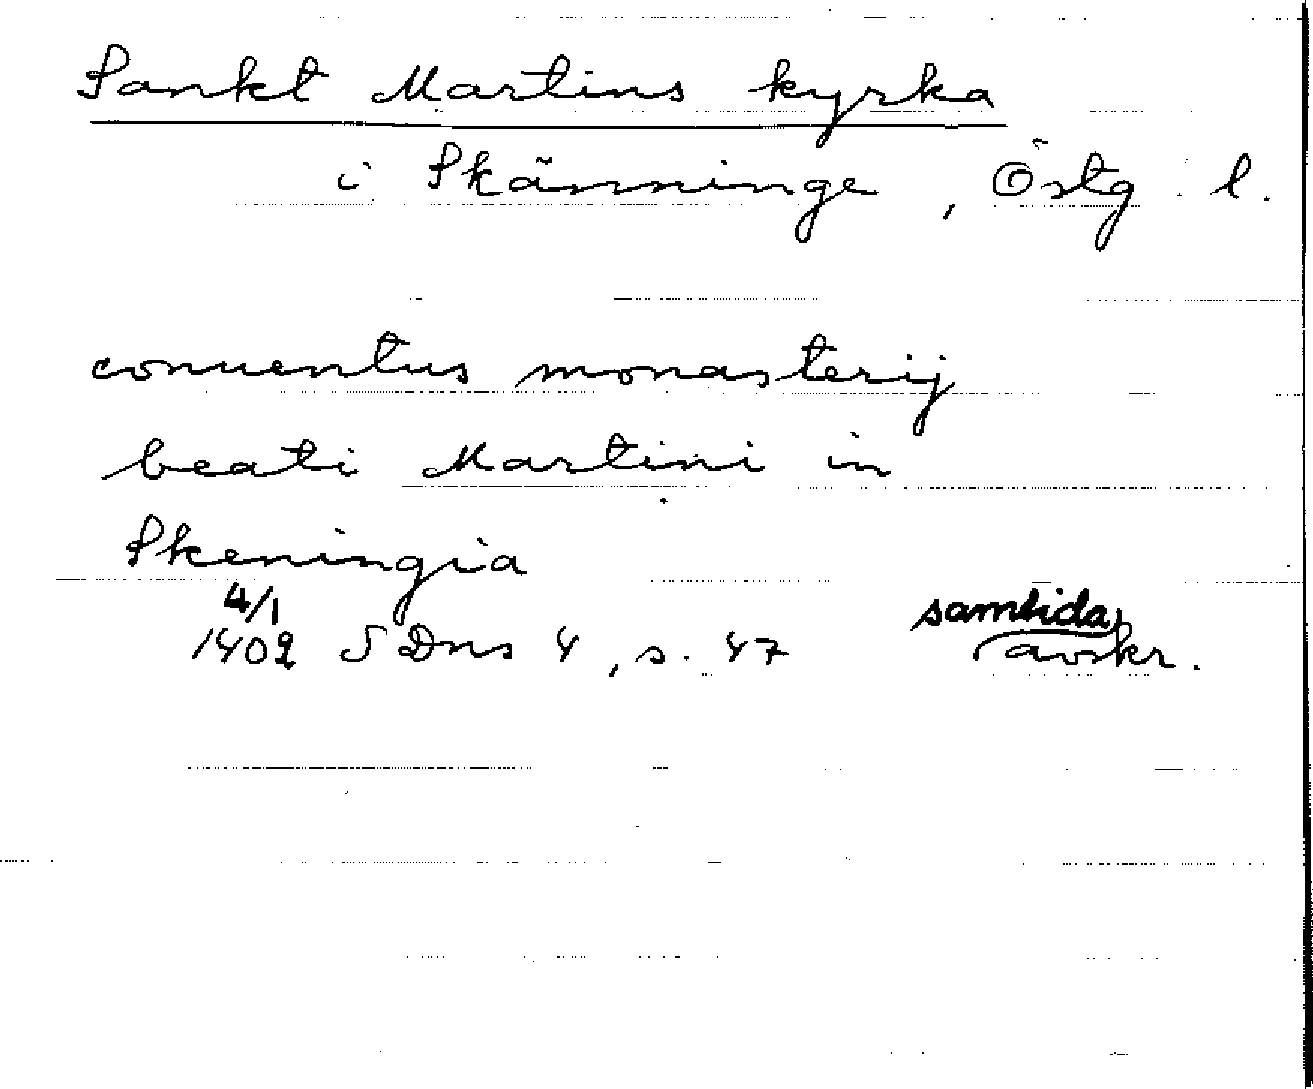 Sankt Martins kyrka
i Skänninge, Östg. l.
conuentus monasterij
beati Martini in
Skeningia
4/1
1402 SDns 4, s. 47 samtida avskr.